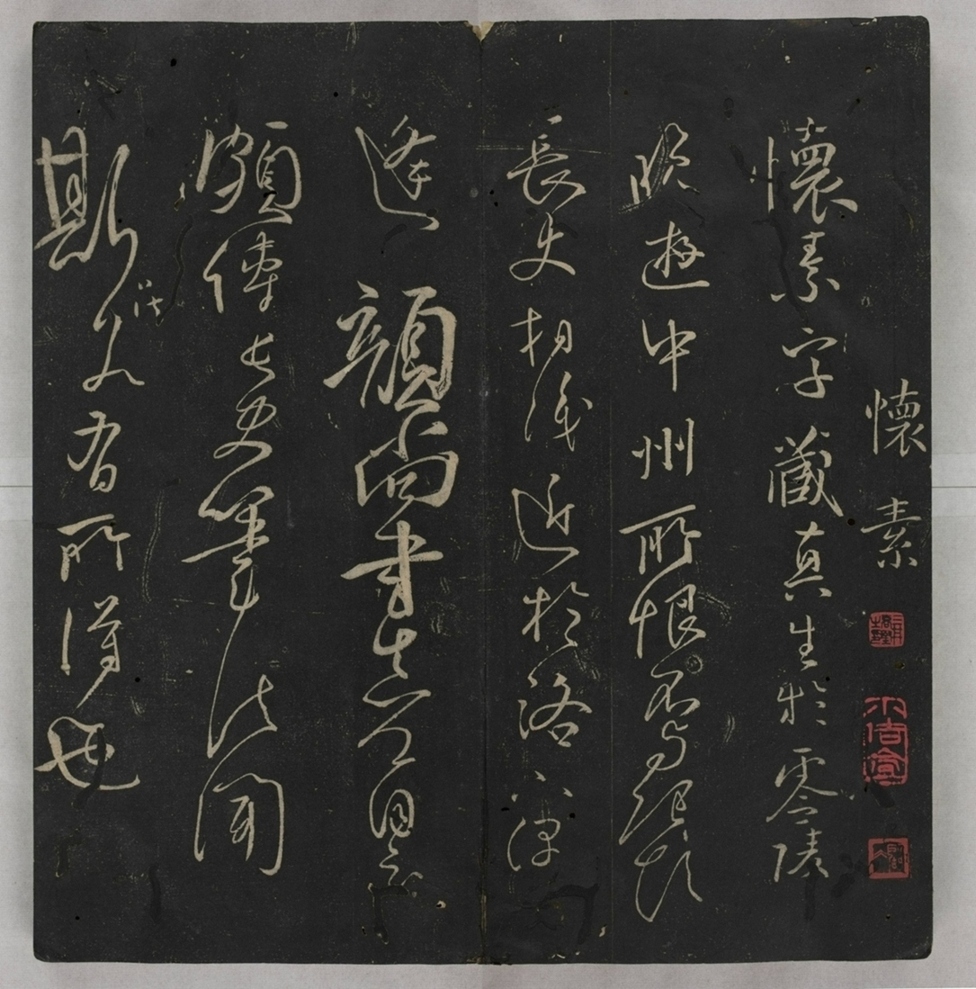 懷素
懷素字藏真生於零陵
晚遊中州所恨不與張顛
長史相識近於洛下偶
逢顏尚書真卿自云
頗傳長史筆法聞
斯法若有所得也